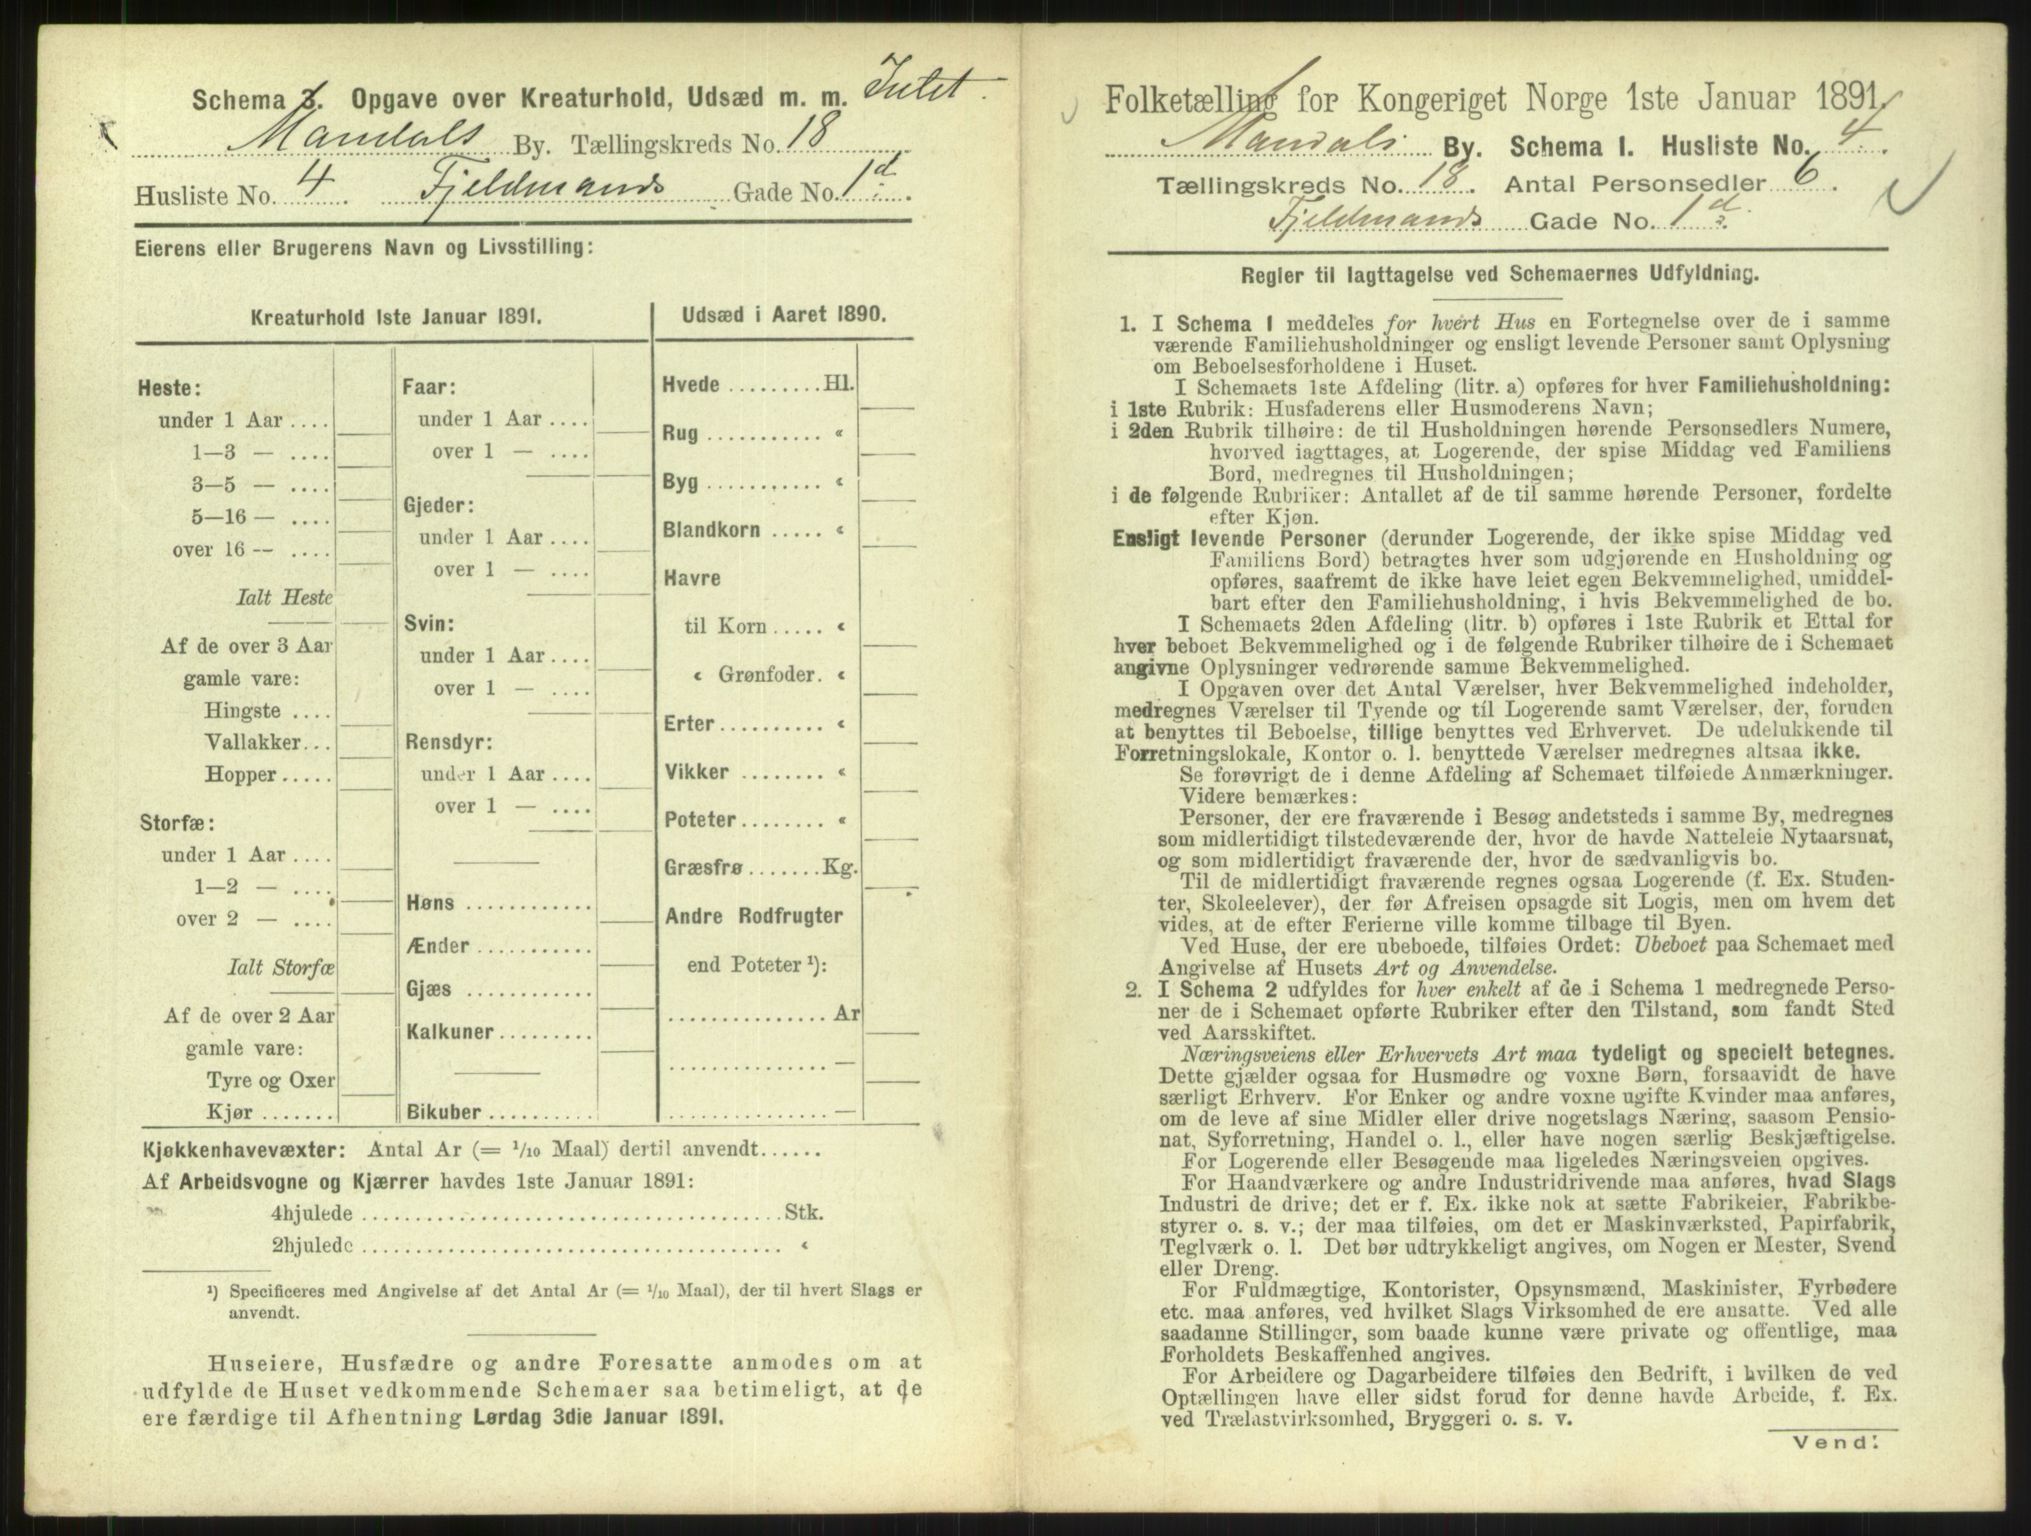 Schema 3. Opgave over Kreaturhold, Udsæd m. m. Intet.
Mandals By. Tællingskreds No. 18
Husliste No. 4 Fjeldmands Gade No. 1d.
Eierens eller Brugerens Navn og Livsstilling:
Kreaturhold 1ste Januar 1891.
Heste:
under 1 Aar ....
1—3 — ....
3—5 — ....
5—16 — ....
over 16 -- ....
Ialt Heste
Af de over 3 Aar
gamle vare:
Hingste ....
Vallakker...
Hopper.....
Storfæ:
under 1 Aar ....
1—2 — ....
over 2 — ....
Ialt Storfæ
Af de over 2 Aar
gamle vare:
Tyre og Oxer
Kjør .......
Faar:
under 1 Aar ....
over 1 — ....
Gjeder:
under 1 Aar ....
over 1 — ....
Svin:
under 1 Aar ....
over 1 — ....
Rensdyr:
under 1 Aar ....
over 1 — ....
Høns ............
Ænder ...........
Gjæs ............
Kalkuner .........
Bikuber ..........
Udsæd i Aaret 1890.
Hvede .........Hl.
Rug ........... «
Byg ........... «
Blandkorn ..... «
Havre
til Korn ..... «
« Grønfoder. «
Erter .......... «
Vikker ........ «
Poteter ........ «
Græsfrø .......Kg.
Andre Rodfrugter
end Poteter ¹):
............... Ar
............... —
............... —
Kjøkkenhavevæxter: Antal Ar (= 1/10 Maal) dertil anvendt......
Af Arbeidsvogne og Kjærrer havdes 1ste Januar 1891:
4hjulede ........................................ Stk.
2hjulede ........................................ «
¹) Specificeres med Angivelse af det Antal Ar (= 1/10 Maal), der til hvert Slags er
anvendt.
Huseiere, Husfædre og andre Foresatte anmodes om at
udfylde de Huset vedkommende Schemaer saa betimeligt, at de
ere færdige til Afhentning Lørdag 3die Januar 1891.
Folketælling for Kongeriget Norge 1ste Januar 1891.
Mandals By. Schema 1. Husliste No. 4.
Tællingskreds No. 18. Antal Personsedler 6.
Fjeldmands Gade No. 1d.
Regler til Iagttagelse ved Schemaernes Udfyldning.
1. I Schema 1 meddeles for hvért Hus en Fortegnelse over de i samme
værende Familiehusholdninger og ensligt levende Personer samt Oplysning
om Beboelsesforholdene i Huset.
I Schemaets 1ste Afdeling (litr. a) opføres for hver Familiehusholdning:
i 1ste Rubrik: Husfaderens eller Husmoderens Navn;
i 2den Rubrik tilhøire: de til Husholdningen hørende Personsedlers Numere,
hvorved iagttages, at Logerende, der spise Middag ved Familiens
Bord, medregnes til Husholdningen;
i de følgende Rubriker: Antallet af de til samme hørende Personer, fordelte
efter Kjøn.
Ensligt levende Personer (derunder Logerende, der ikke spise Middag ved
Familiens Bord) betragtes hver som udgjørende en Husholdning og
opføres, saafremt de ikke have leiet egen Bekvemmelighed, umiddel-
bart efter den Familiehusholdning, i hvis Bekvemmelighed de bo.
I Schemaets 2den Afdeling (litr. b) opføres i 1ste Rubrik et Ettal for
hver beboet Bekvemmelighed og i de følgende Rubriker tilhøire de i Schemaet
angivne Oplysninger vedrørende samme Bekvemmelighed.
I Opgaven over det Antal Værelser, hver Bekvemmelighed indeholder,
medregnes Værelser til Tyende og til Logerende samt Værelser, der, foruden
at benyttes til Beboelse, tillige benyttes ved Erhvervet. De udelukkende til
Forretningslokale, Kontor o. l. benyttede Værelser medregnes altsaa ikke.
Se forøvrigt de i denne Afdeling af Schemaet tilføiede Anmærkninger.
Videre bemærkes:
Personer, der ere fraværende i Besøg andetsteds i samme By, medregnes
som midlertidigt tilstedeværende der, hvor de havde Natteleie Nytaarsnat,
og som midlertidigt fraværende der, hvor de sædvanligvis bo.
Til de midlertidigt fraværende regnes ogsaa Logerende (f. Ex. Studen-
ter, Skoleelever), der før Afreisen opsagde sit Logis, men om hvem det
vides, at de efter Ferierne ville komme tilbage til Byen.
Ved Huse, der ere ubeboede, tilføies Ordet: Ubeboet paa Schemaet med
Angivelse af Husets Art og Anvendelse.
2. I Schema 2 udfyldes for hver enkelt af de i Schema 1 medregnede Perso-
ner de i Schemaet opførte Rubriker efter den Tilstand, som fandt Sted
ved Aarsskiftet.
Næringsveiens eller Erhvervets Art maa tydeligt og specielt betegnes.
Dette gjælder ogsaa for Husmødre og voxne Børn, forsaavidt de have
særligt Erhverv. For Enker og andre voxne ugifte Kvinder maa anføres,
om de leve af sine Midler eller drive nogetslags Næring, saasom Pensio-
nat, Syforretning, Handel o. l., eller have nogen særlig Beskjæftigelse.
For Logerende eller Besøgende maa ligeledes Næringsveien opgives.
For Haandværkere og andre Industridrivende maa anføres, hvad Slags
Industri de drive; det er f. Ex. ikke nok at sætte Fabrikeier, Fabrikbe-
styrer o. s. v.; der maa tilføies, om det er Maskinværksted, Papirfabrik,
Teglværk o. l. Det bør udtrykkeligt angives, om Nogen er Mester, Svend
eller Dreng.
For Fuldmægtige, Kontorister, Opsynsmænd, Maskinister, Fyrbødere
etc. maa anføres, ved hvilket Slags Virksomhed de ere ansatte. Ved alle
saadanne Stillinger, som baade kunne være private og offentlige, maa
Forholdets Beskaffenhed angives.
For Arbeidere og Dagarbeidere tilføies den Bedrift, i hvilken de ved
Optællingen have eller sidst forud for denne havde Arbeide, f. Ex.
ved Trælastvirksomhed, Bryggeri o. s. v.
Vend!